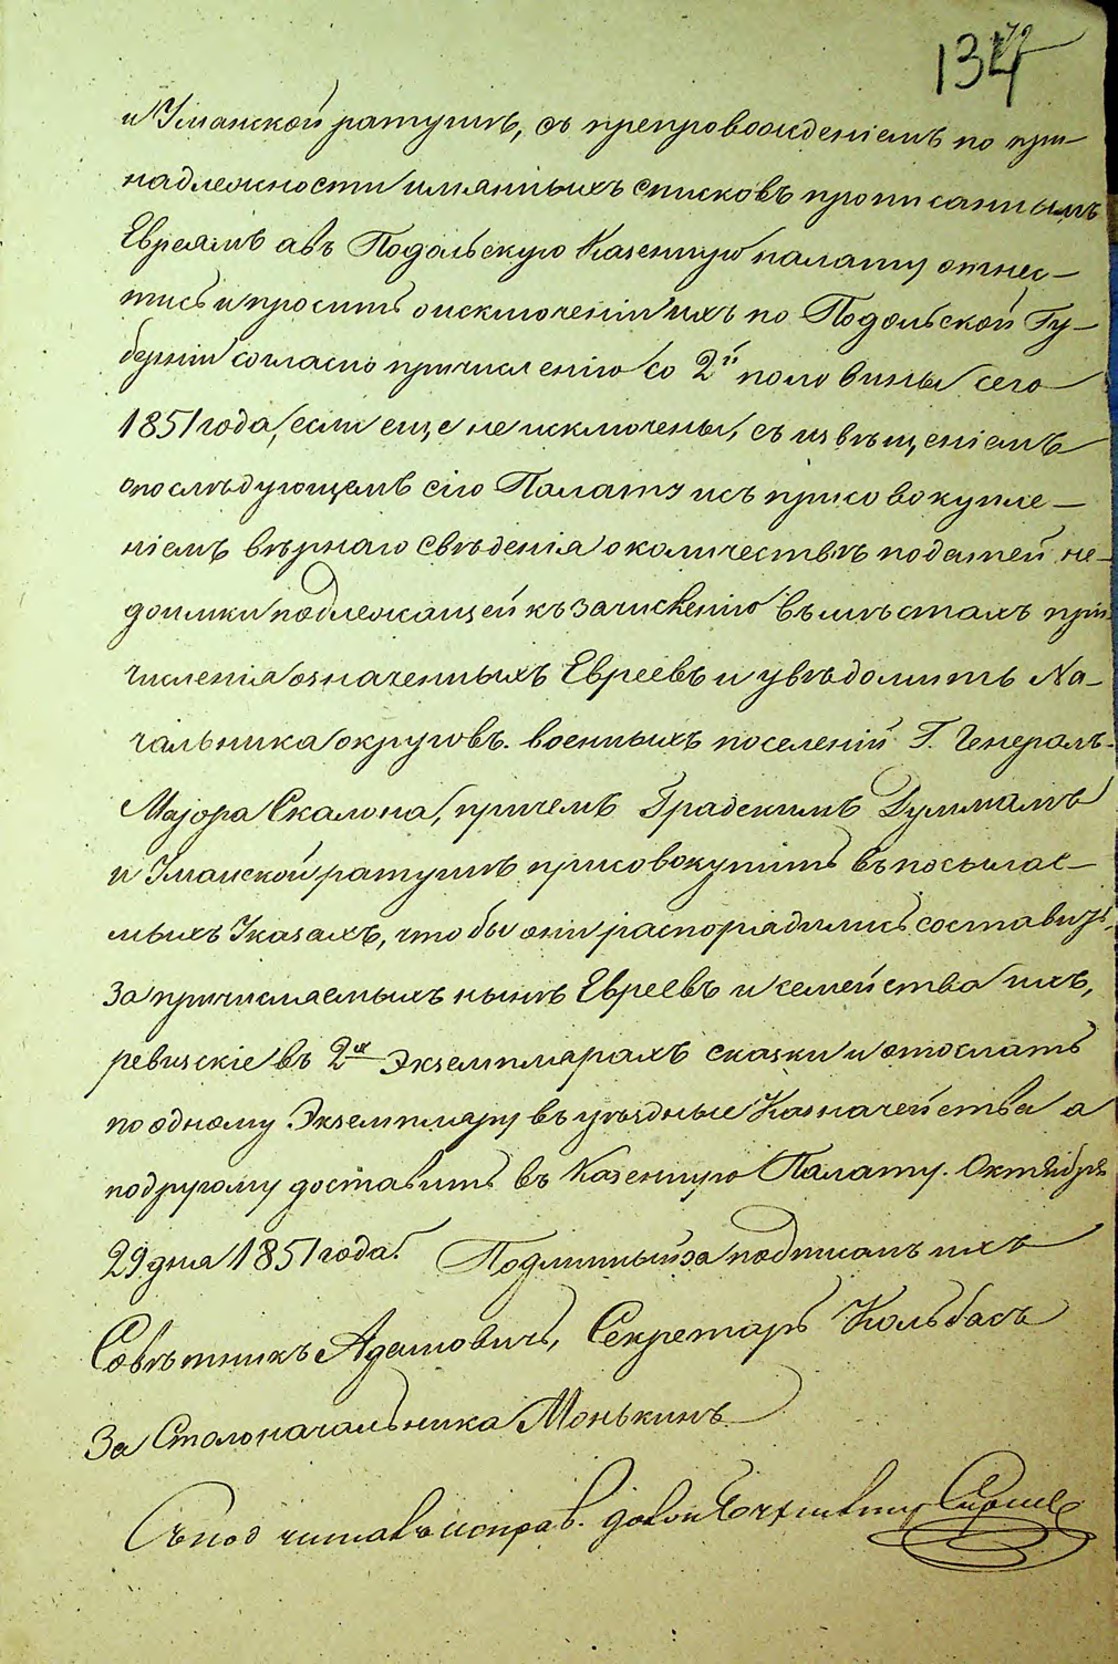 134
и Уманской ратушѣ, съ препровожденіемъ по при-
надлежности имянныхъ списковъ прописаннымъ
Евреямъ а въ Подольскую Казенную палату отнес-
тись и просить о исключеніи ихъ по Подольской Гу-
берніи согласно причисленію со 2й половины сего
1851 года, если еще не исключены, съ извѣщеніемъ
о послѣдующемъ сію Палату и съ присовокупле-
ніемъ вѣрнаго свѣденія о количествѣ податей не-
доимки подлежащей къ зачисленію въ мѣстахъ при-
численія означенныхъ Евреевъ и увѣдомить На-
чальника округовъ военныхъ поселеній Г. Генералъ-
Маіора Скалона, причемъ Градскимъ Думмамъ
и Уманской ратушѣ присовокупить въ посылае-
мыхъ Указахъ, что бы они распорядились составить
за причисляемыхъ нынѣ Евреевъ и семейства ихъ,
ревизскіе въ 2х Экземплярахъ сказки и отослать
по одному Экземпляру въ уѣздные Казначейства а
по другому доставить въ Казенную Палату. Октября
29 дня 1851 года. Подлинный за подписаніемъ
Совѣтникъ Адамовичъ, Секретарь Кольбасъ
За Столоначальника Монькинъ
Съ под читавъ исправ.